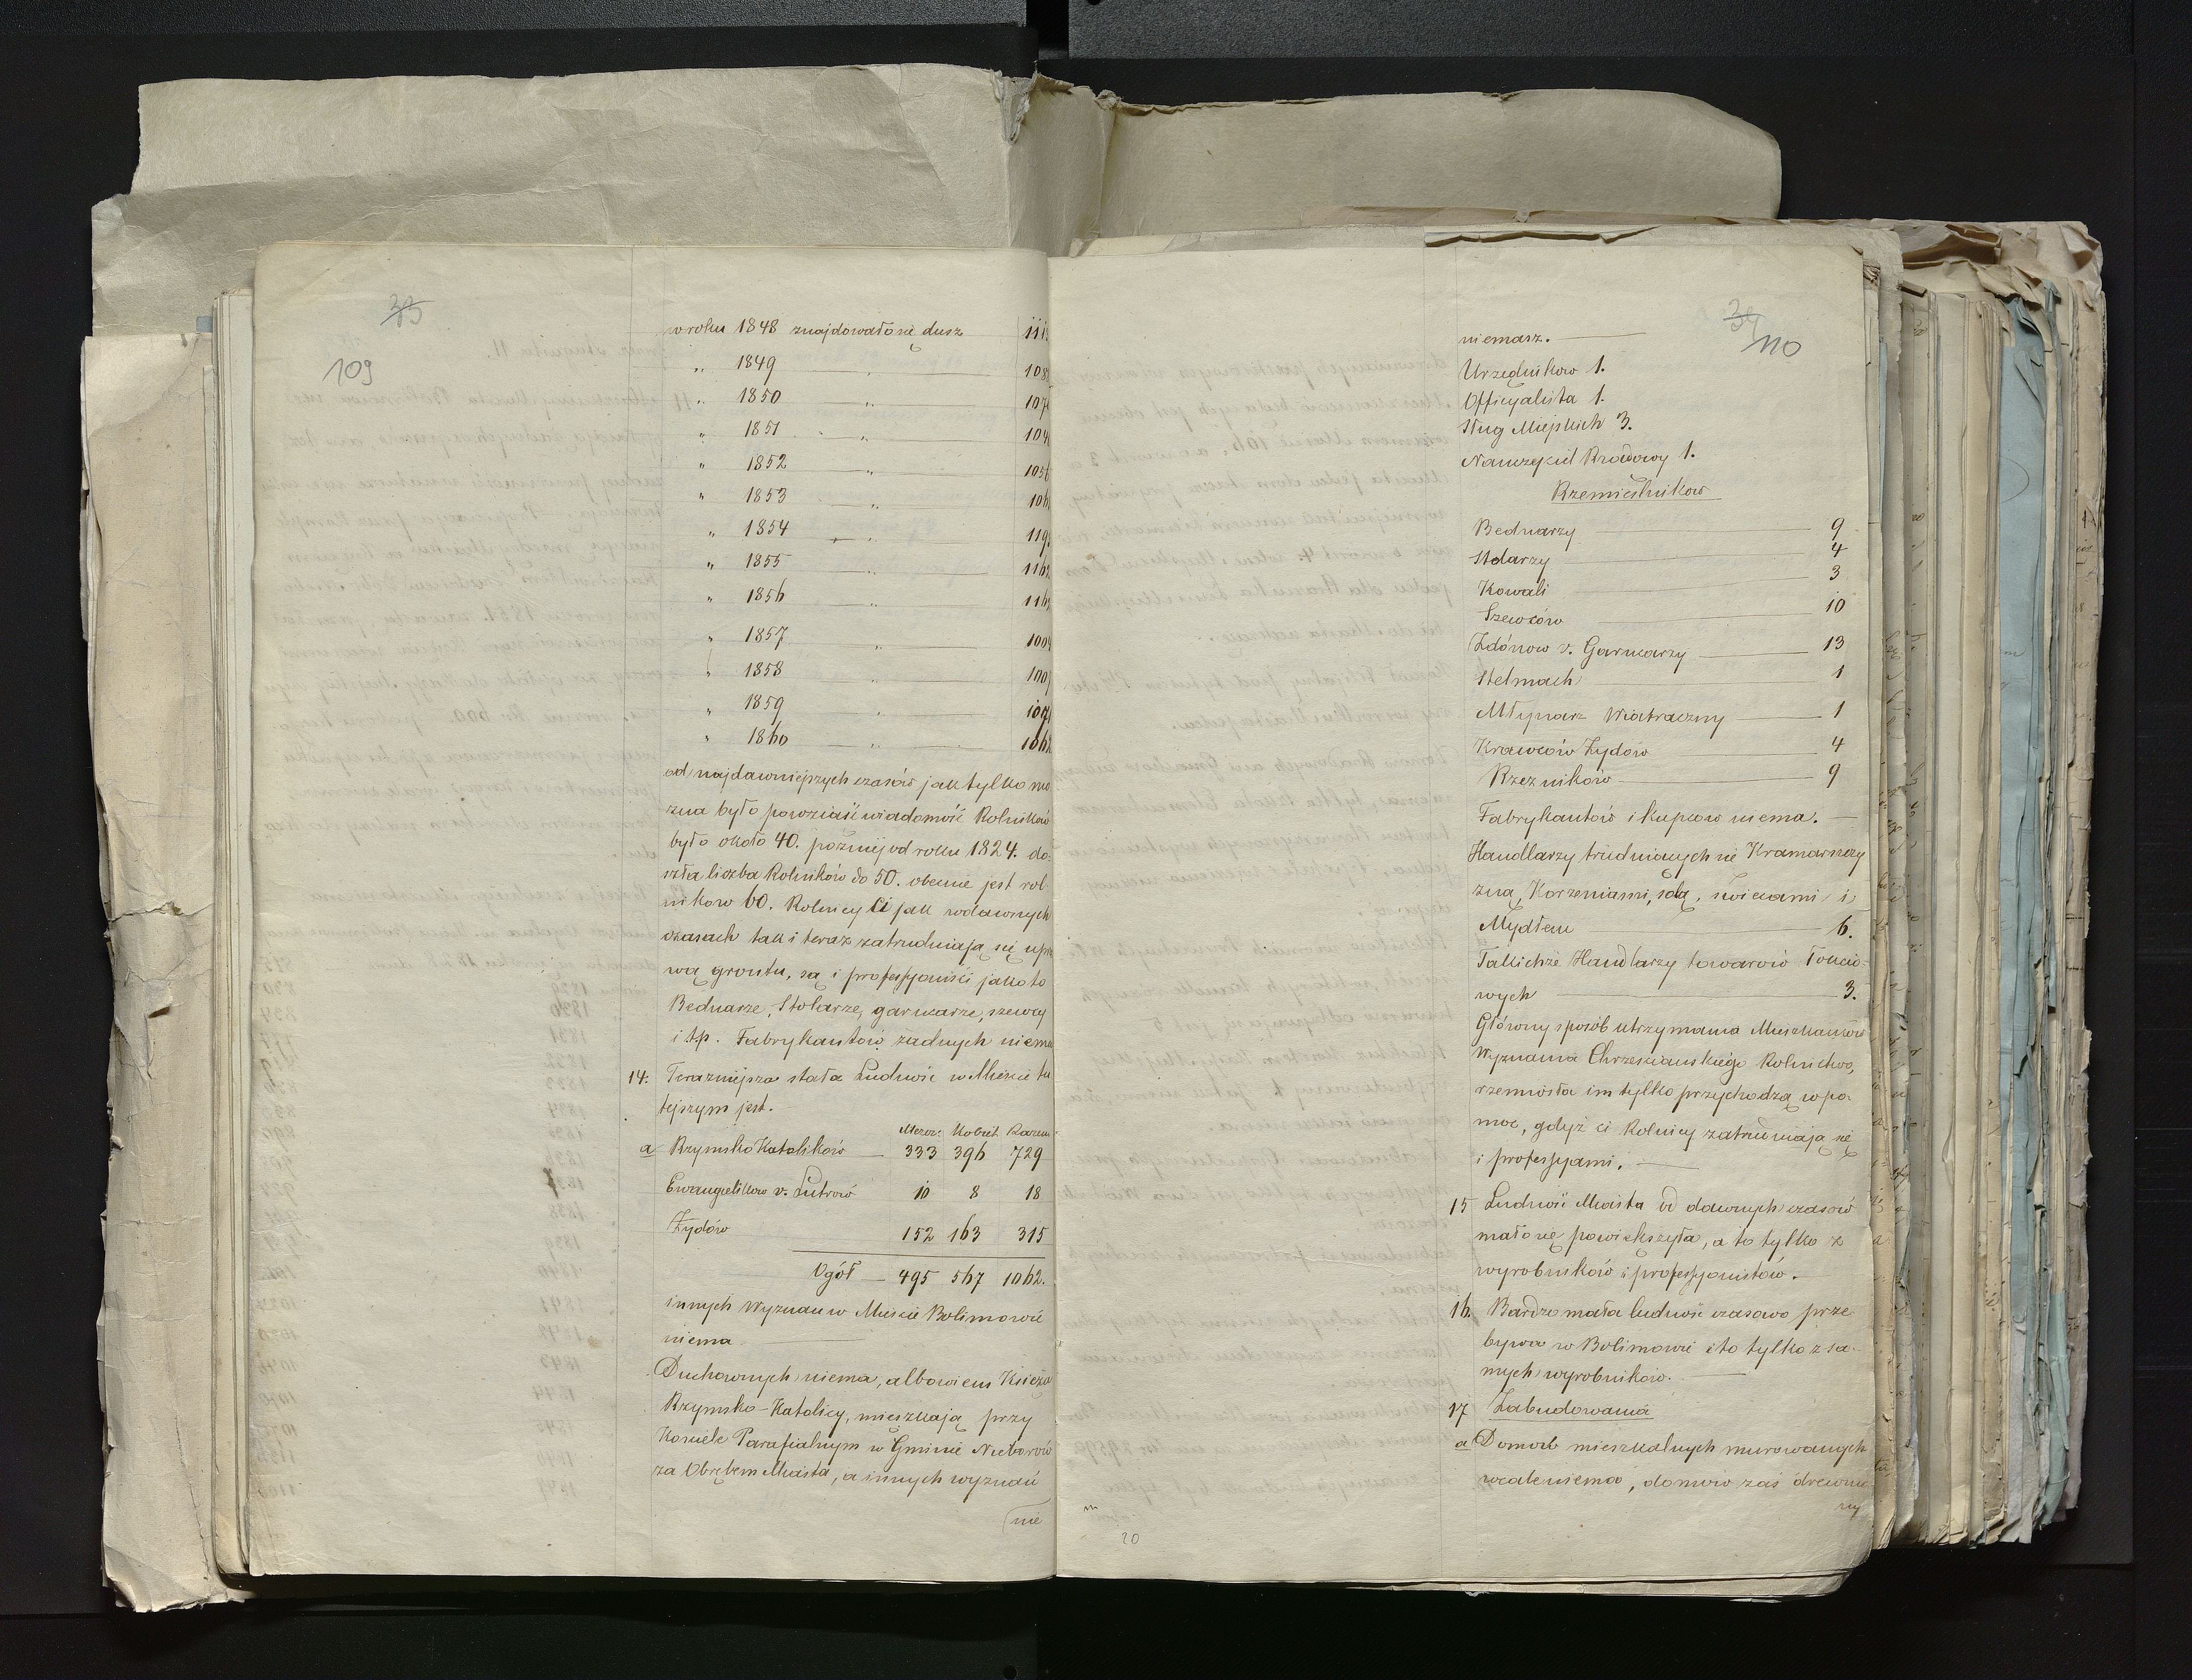 35
109
w roku 1848 znajdowało się dusz 111
" 1849 " 108
" 1850 " 107
" 1851 " 104
" 1852 " 105
" 1853 " 106
" 1854 " 119
" 1855 " 116
" 1856 " 116
" 1857 " 100
" 1858 " 100
" 1859 " 107
" 1860 " 106
od najdawniejszych czasów jak tylko mo
żna było powziąść wiadomość Rolników
było około 40. poźniej od roku 1824. do-
szła liczba Rolników do 50. obecnie jest rol-
ników 60. Rolnicy Ci jak w dawnych
czasach tak i teraz zatrudniają się upra
wą gruntu, są i professyoniści jako to
Bednarze, Stolarze, garncarze, szewcy
i t.p. Fabrykantów żadnych niema
14. Teraźniejsza stała Ludność w Mieście tu
tejszym jest.
Męzcz: Kobiet Razem
a Rzymsko Katolików — 333 396 729
Ewangielików v. Lutrów 10 8 18
Żydów 152 163 315
Ogół — 495 567 1062.
innych Wyznań w Mieście Bolimowie
niema
Duchownych niema, albowiem Księża
Rzymsko-Katolicy, mieszkają przy
Kościele Parafialnym w Gminie Nieborów
za Obrębem Miasta, a innych wyznań
nie
110
niemasz. —
Urzędników 1.
Officyalista 1.
Sług Miejskich 3.
Nauczyciel Rządowy 1.
Rzemieślników
Bednarzy — 9
Stolarzy — 4
Kowali — 3
Szewców — 10
Zdónow v. Garncarzy — 13
Stelmach — 1
Młynarz Wiatraczny — 1
Krawców Żydów — 4
Rzeźników — 9
Fabrykantów i kupców niema. —
Handlarzy trudniących się Kramarszczy
zną, Korzeniami, solą, świecami i
Mydłem — 6.
Takichże Handlarzy towarów Łokcio-
wych — 3.
Główny sposób utrzymania Mieszkańców
Wyznania Chrześciańskiego Rolnictwo,
rzemiosła im tylko przychodzą w po-
moc, gdyż ci Rolnicy zatrudniają się
i professyami. —
15 Ludność Miasta od dawnych czasów
mało się powiększyła, a to tylko z
wyrobników i professyonistów. —
16. Bardzo mała ludność czasowo prze
bywa w Bolimowie i to tylko z sa-
mych wyrobników. —
17 Zabudowania
a Domów mieszkalnych murowanych
wcale niema, domów zaś drewnia
ny
20